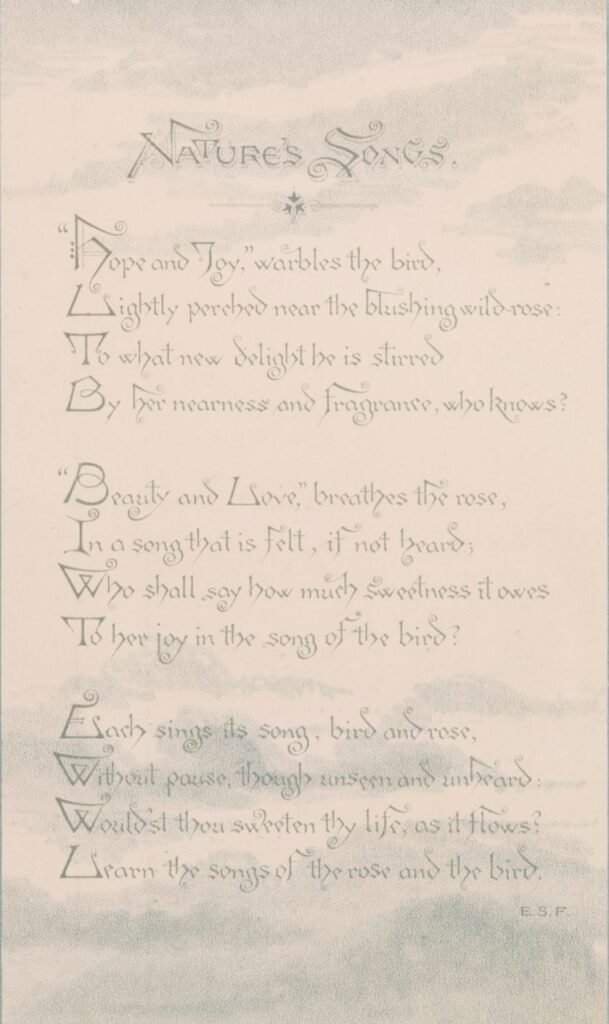 Nature's Songs.
"Hope and Joy," warbles the bird,
Lightly perched near the blushing wild-rose:
To what new delight he is stirred
By her nearness and fragrance, who knows?
"Beauty and Love," breathes the rose,
In a song that is felt, if not heard;
Who shall say how much sweetness it owes
To her joy in the song of the bird?
Each sings its song, bird and rose,
Without pause, though unseen and unheard:
Would'st thou sweeten thy life, as it flows?
Learn the songs of the rose and the bird.
E.S.F.